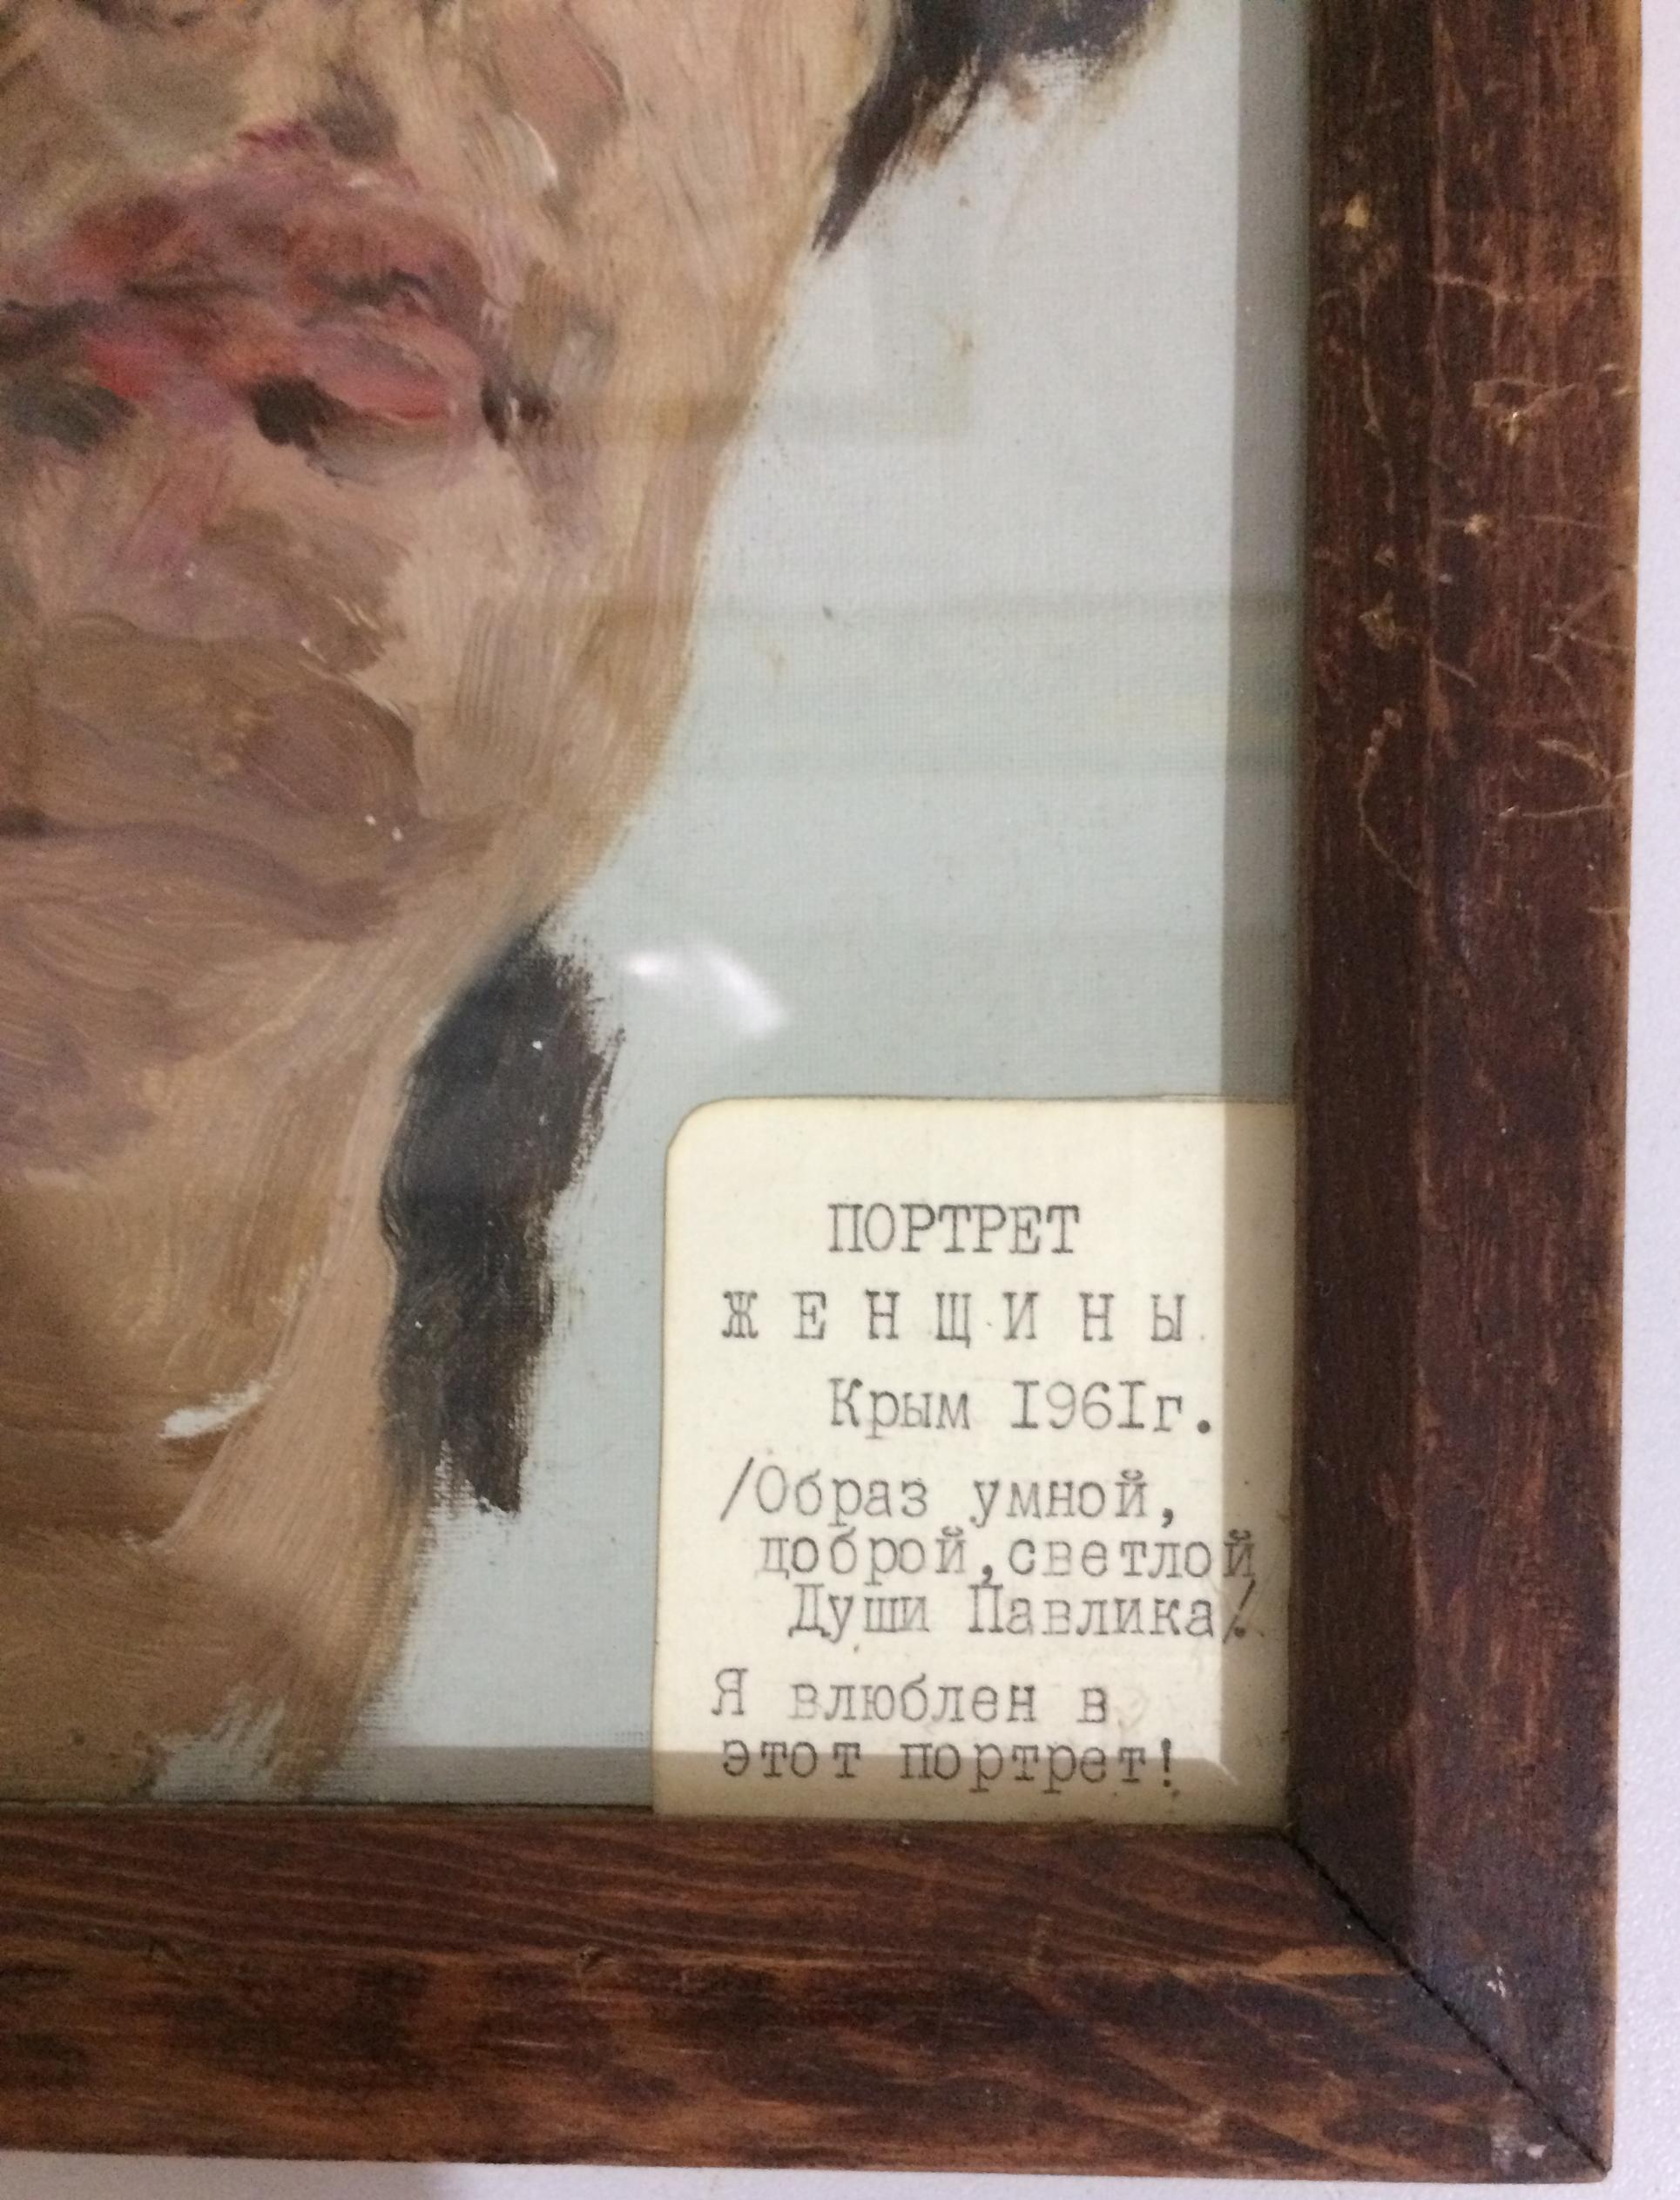 ПОРТРЕТ
ЖЕНЩИНЫ
Крым I96Iг.
/Образ умной,
доброй,светлой
Души Павлика/.
Я влюблен в
этот портрет!